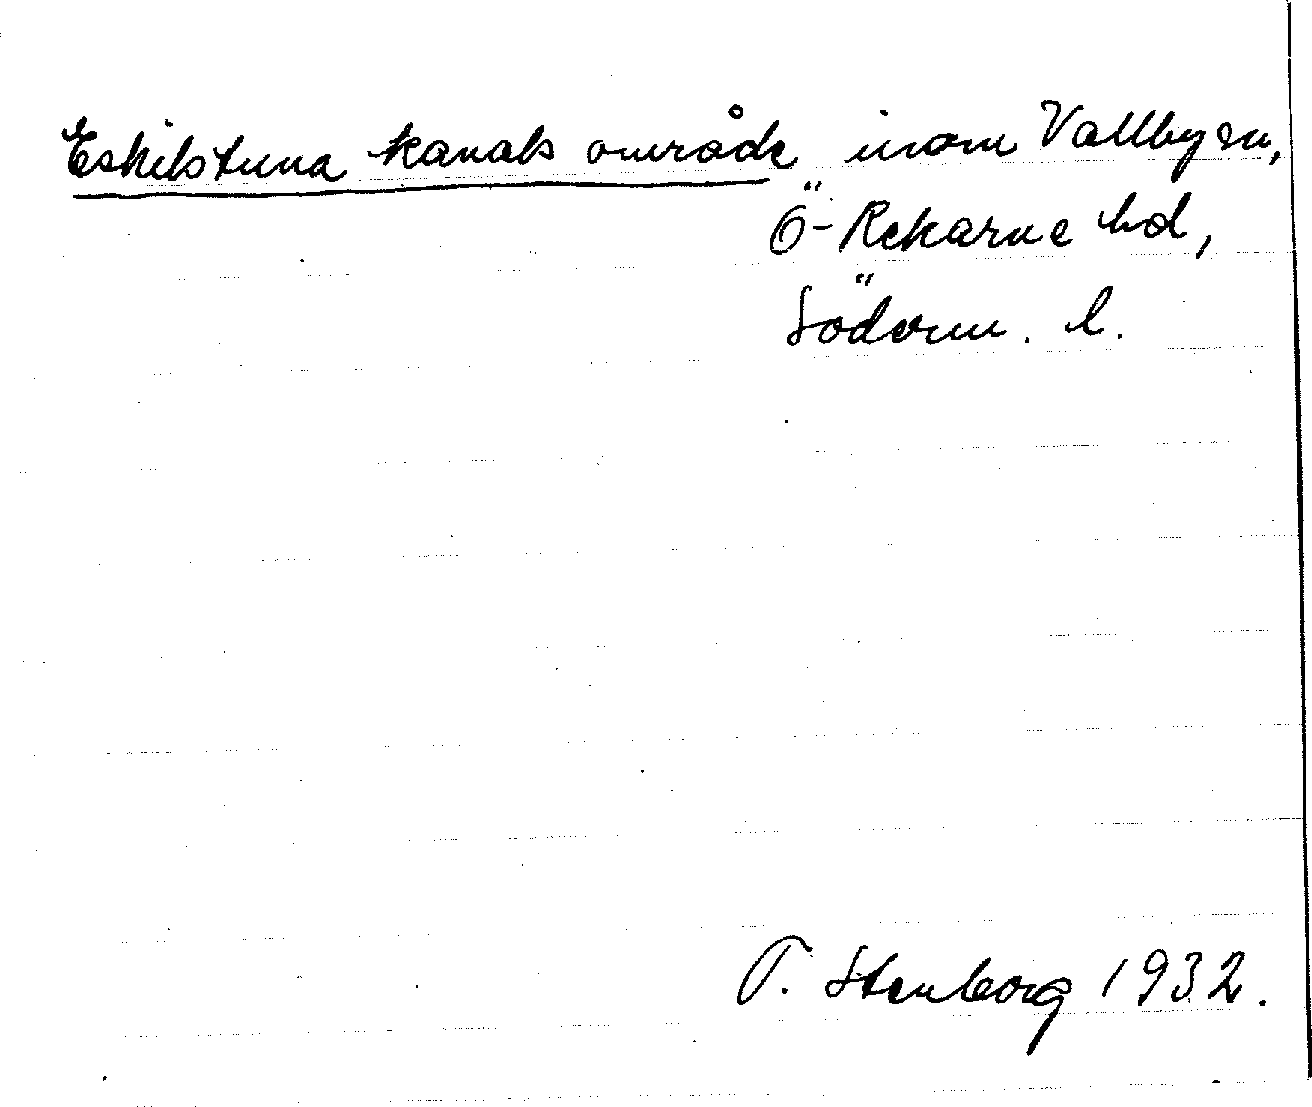 Eskilstuna kanals område inom Vallby sn,
Ö-Rekarne hd,
Söderm. l.
T. Stenborg 1932.